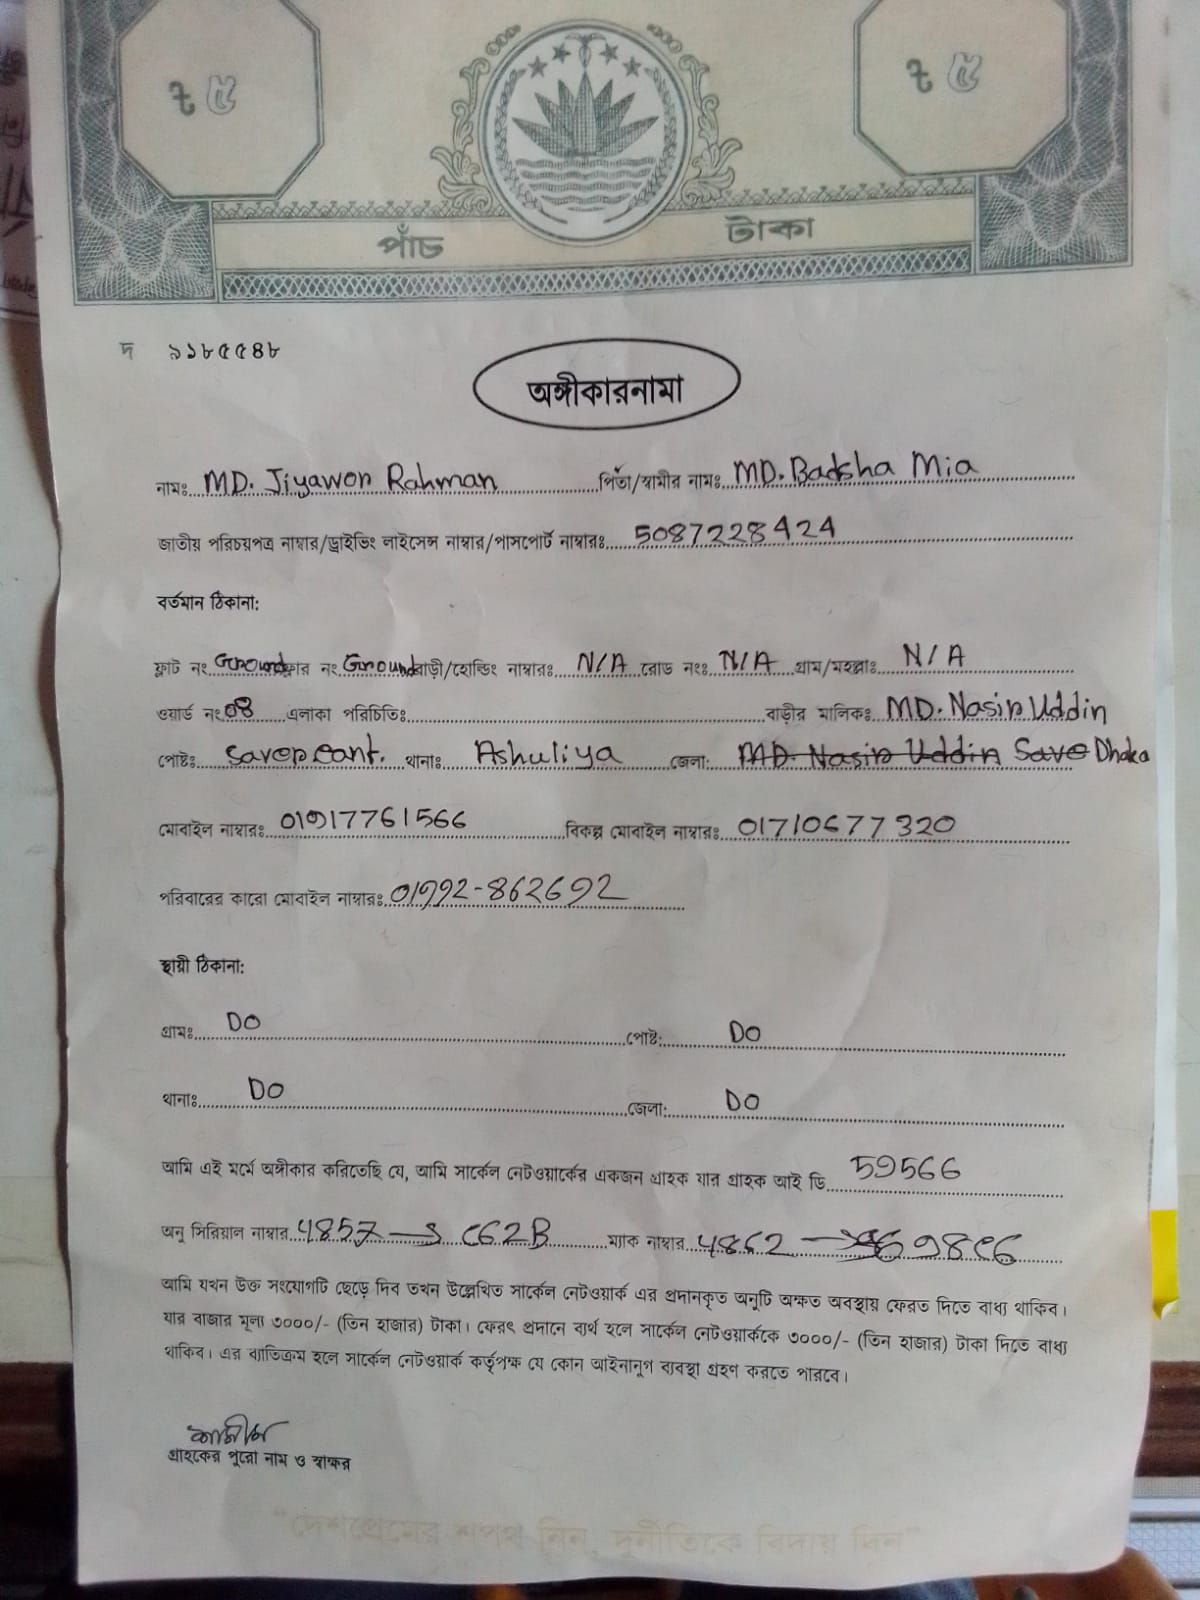 ৳ ৫ ৳ ৫
পাঁচ টাকা
দ ৯১৮৫৫৪৮
অঙ্গীকারনামা
নামঃ MD. Jiyawor Rahman পিতা/স্বামীর নামঃ MD. Badsha Mia
জাতীয় পরিচয়পত্র নাম্বার/ড্রাইভিং লাইসেন্স নাম্বার/পাসপোর্ট নাম্বারঃ 5087228424
বর্তমান ঠিকানা:
ফ্লাট নং Ground ফ্লোর নং Ground বাড়ী/হোল্ডিং নাম্বারঃ N/A রোড নংঃ N/A গ্রাম/মহল্লাঃ N/A
ওয়ার্ড নং 08 এলাকা পরিচিতিঃ বাড়ীর মালিকঃ MD. Nasir Uddin
পোষ্টঃ Saver Cant. থানাঃ Ashuliya জেলা: MD. Nasir Uddin Save Dhaka
মোবাইল নাম্বারঃ 01917761566 বিকল্প মোবাইল নাম্বারঃ 01710677320
পরিবারের কারো মোবাইল নাম্বারঃ 01992-862692
স্থায়ী ঠিকানা:
গ্রামঃ DO পোষ্ট: DO
থানাঃ DO জেলা: DO
আমি এই মর্মে অঙ্গীকার করিতেছি যে, আমি সার্কেল নেটওয়ার্কের একজন গ্রাহক যার গ্রাহক আই ডি 59566
অনু সিরিয়াল নাম্বার 4857 C62B ম্যাক নাম্বার 4862 698C6
আমি যখন উক্ত সংযোগটি ছেড়ে দিব তখন উল্লেখিত সার্কেল নেটওয়ার্ক এর প্রদানকৃত অনুটি অক্ষত অবস্থায় ফেরত দিতে বাধ্য থাকিব।
যার বাজার মূল্য ৩০০০/- (তিন হাজার) টাকা। ফেরৎ প্রদানে ব্যর্থ হলে সার্কেল নেটওয়ার্ককে ৩০০০/- (তিন হাজার) টাকা দিতে বাধ্য
থাকিব। এর ব্যতিক্রম হলে সার্কেল নেটওয়ার্ক কর্তৃপক্ষ যে কোন আইনানুগ ব্যবস্থা গ্রহণ করতে পারবে।
গ্রাহকের পুরো নাম ও স্বাক্ষর
"দেশপ্রেমের শপথ নিন, দুর্নীতিকে বিদায় দিন"